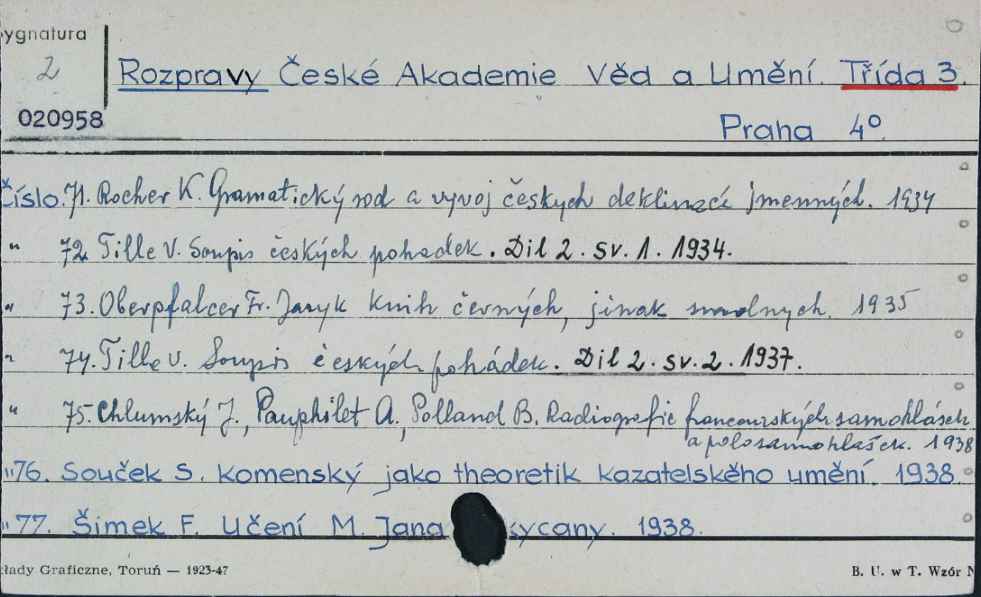 ygnatura
2
Rozpravy České Akademie Věd a Umění. Třída 3.
020958
Praha 4°
Číslo 71. Rocher K. Gramatický rod a vyvoj českych deklinací jmenných. 1934
" 72. Tille V. Soupis českých pohadek. Dil 2. sv. 1. 1934.
" 73. Oberpfalcer Fr. Jazyk knih černých, jinak smolnych. 1935
" 74. Tille V. Soupis českých pohádek. Dil 2. sv. 2. 1937.
" 75. Chlumský J., Pauphilet A., Polland B. Radiografie francouzských samohlásek
a polosamohlašek. 1938
" 76. Souček S. Komenský jako theoretik kazatelského umění. 1938.
" 77. Šimek F. Učení M. Jana kycany. 1938.
łady Graficzne, Toruń — 1923-47
B. U. w T. Wzór N